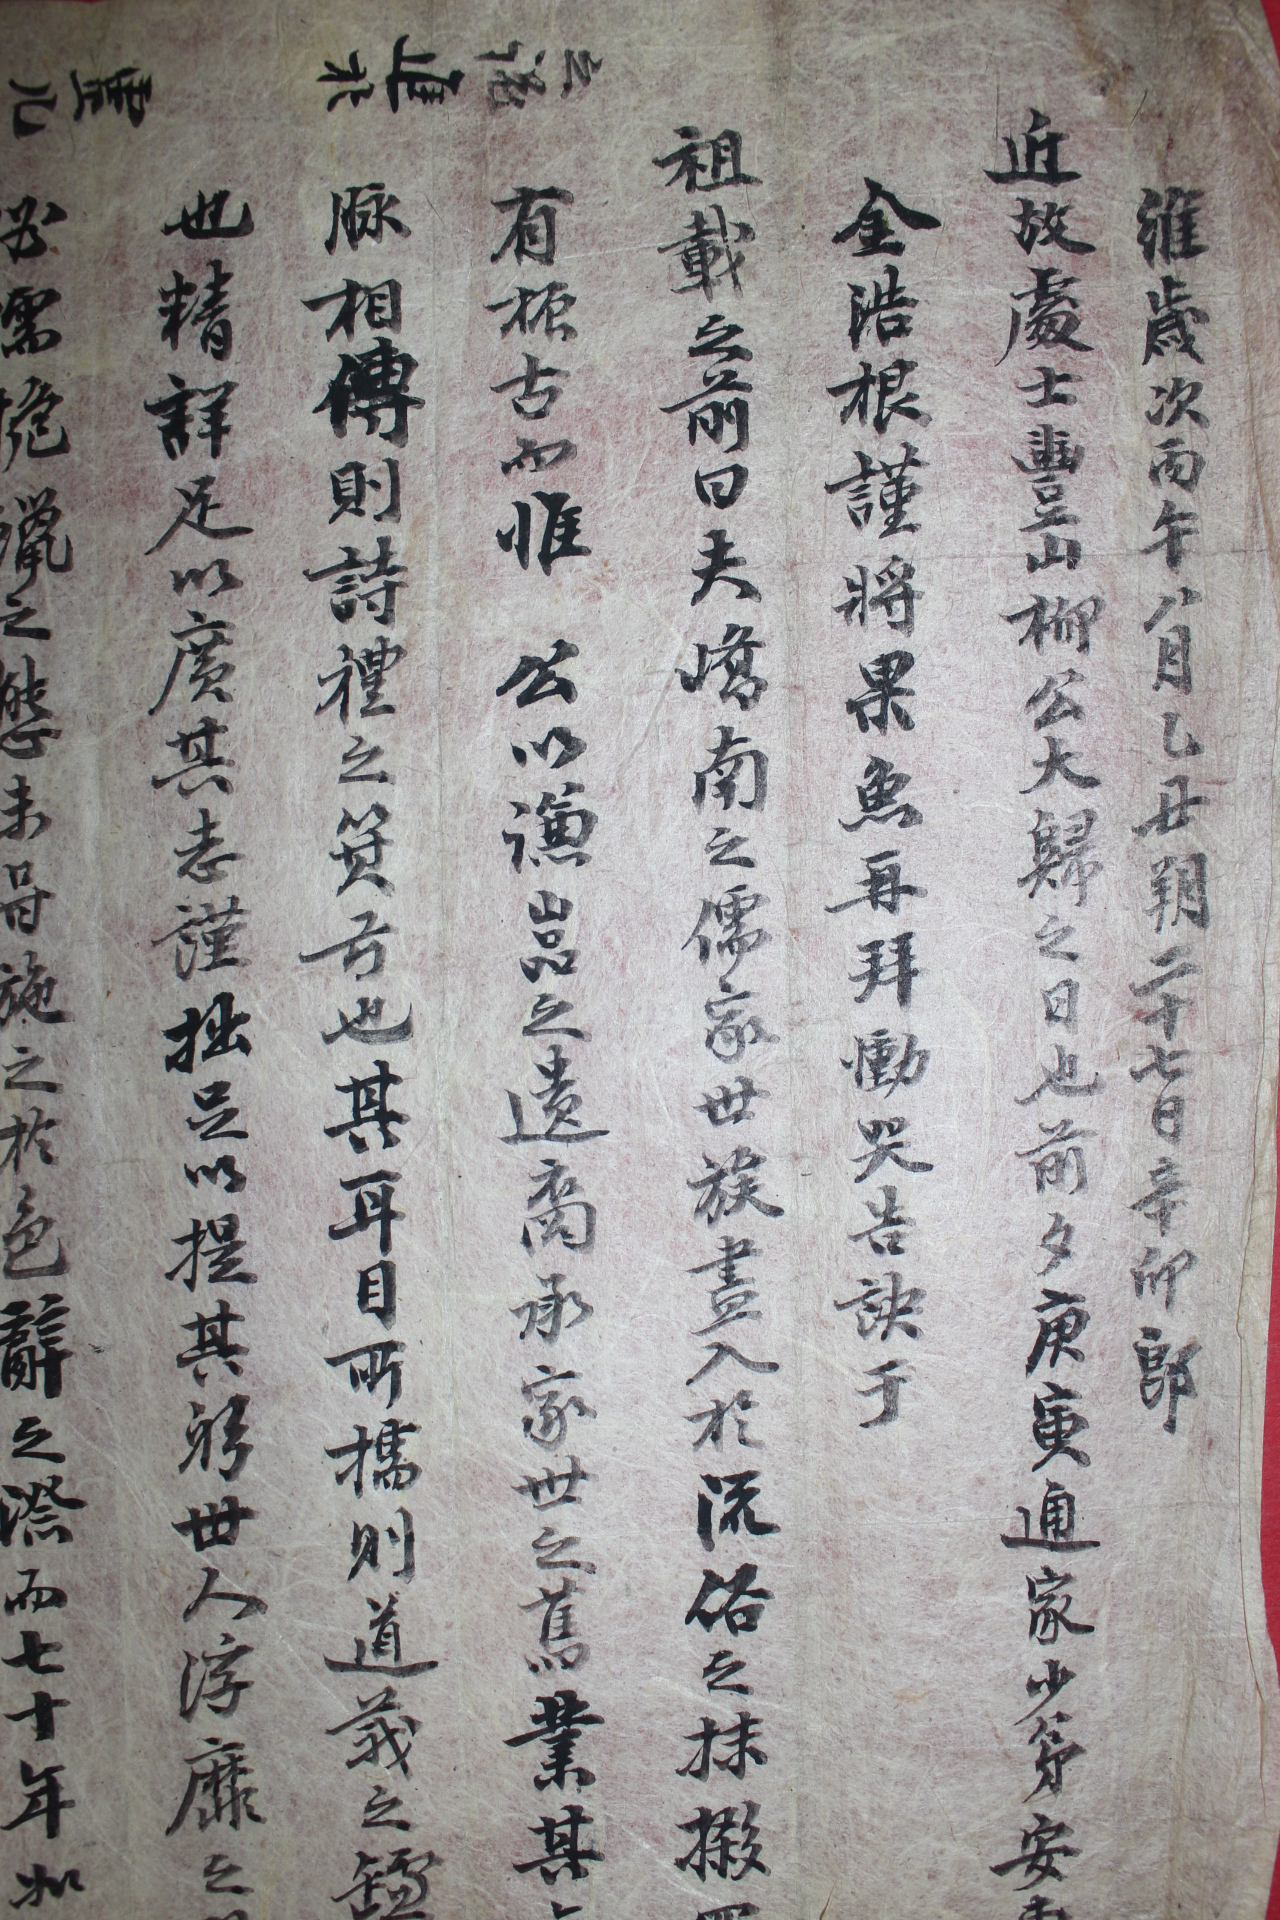 維歲次丙午八月乙丑朔二十七日辛卯郎
近故處士豊山柳公大歸之日也前夕庚寅通家少弟安東
金浩根謹將果魚再拜慟哭告訣于
祖載之前曰夫嶠南之儒家世族盡入於流俗之抹摋
有極古而惟 公以謙嵓之遺裔承家世之舊業其
脉相傳則詩禮之箕弓也其耳目所擩則道義之
也精詳足以廣其志謹拙足以提其躬世人浮靡之
之態未甞施之於色辭之際而七十年如